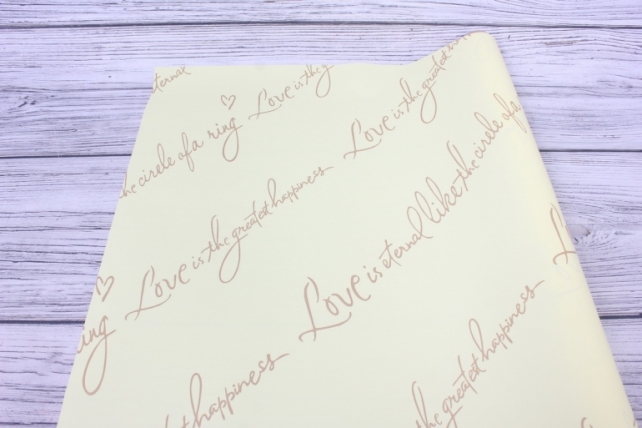 eternal
Love is the g
the circle of a ring
Love is the greatest
Love is the greatest happiness
Love is eternal like the circle of a
ring
L
the greatest happiness
t happiness